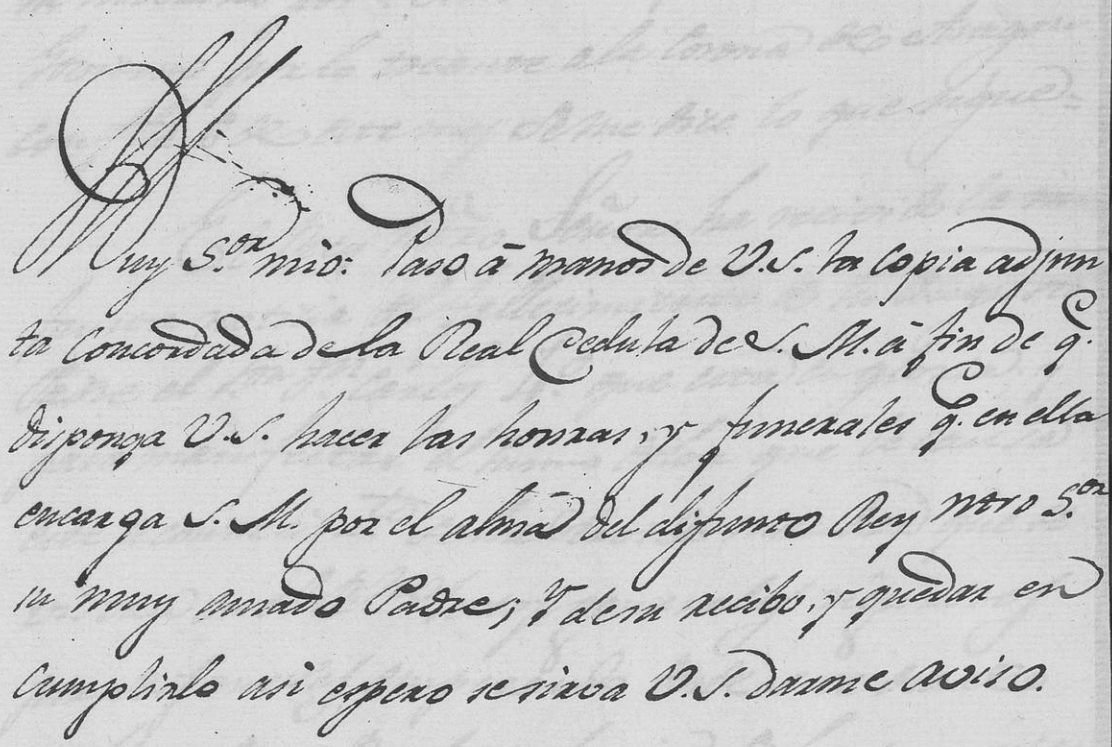 Muy S.or mio: Paso â manos de V.S. la copia adjun
ta concordada de la Real Cedula de S. M. â fin de q.e
disponga V.S. hacer las honras, y funerales q.e en ella
encarga S. M. por el alma del difunto Rey ntro S.or
su muy amado Padre; Y de su recibo, y quedar en
cumplirlo asi espero se sirva V.S. darme aviso.